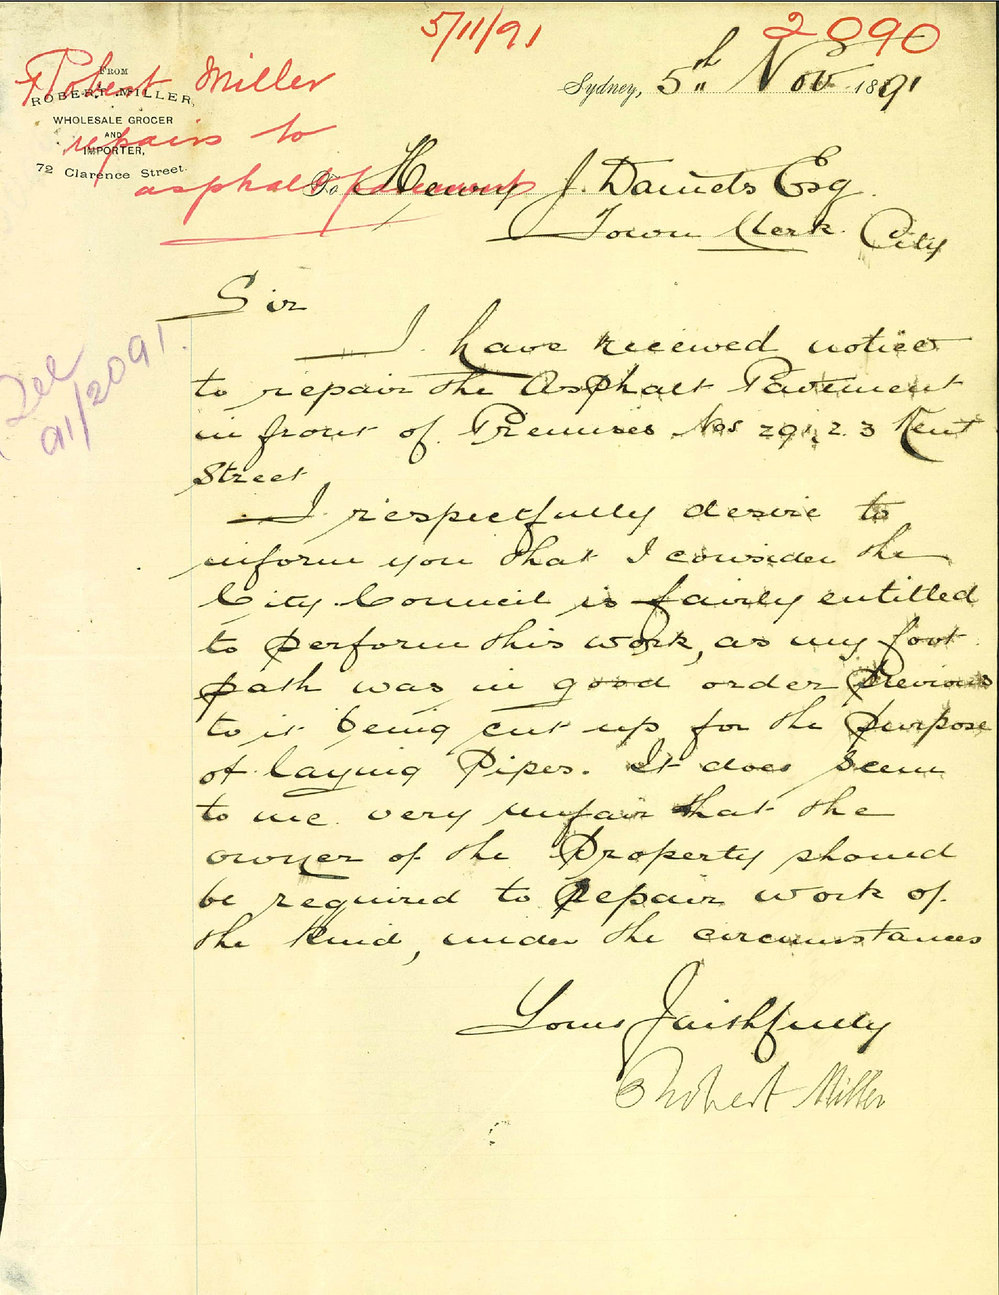 5/11/91
2090
Robert Miller
repairs to
asphalt pavement
FROM
ROBERT MILLER,
WHOLESALE GROCER
AND
IMPORTER,
72 Clarence Street.
Sydney, 5th Nov 1891
To Henry J. Daniels Esq.
Town Clerk. City
Sir
91/2091.
I have received notice
to repair the Asphalt Pavement
in front of Premises Nos 291, 2. 3 Kent
Street
I respectfully desire to
inform you that I consider the
City Council is fairly entitled
to perform this work, as my foot
path was in good order previous
to it being cut up for the purpose
of laying Pipes. It does seem
to me very unfair that the
owner of the Property should
be required to repair work of
the kind, under the circumstances
Yours Faithfully
Robert Miller